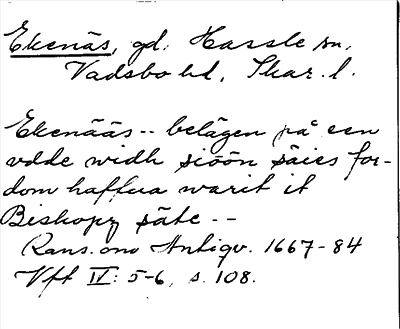 Ekenäs, gd. Hassle sn,
Vadsbo hd, Skar. l.
Ekenääs -- belägen på een
vdde widh siöön säies for-
dom haffua warit it
Biskopz säte --
Rans. ono Antiqv. 1667-84
Vff IV: 5-6, s. 108.